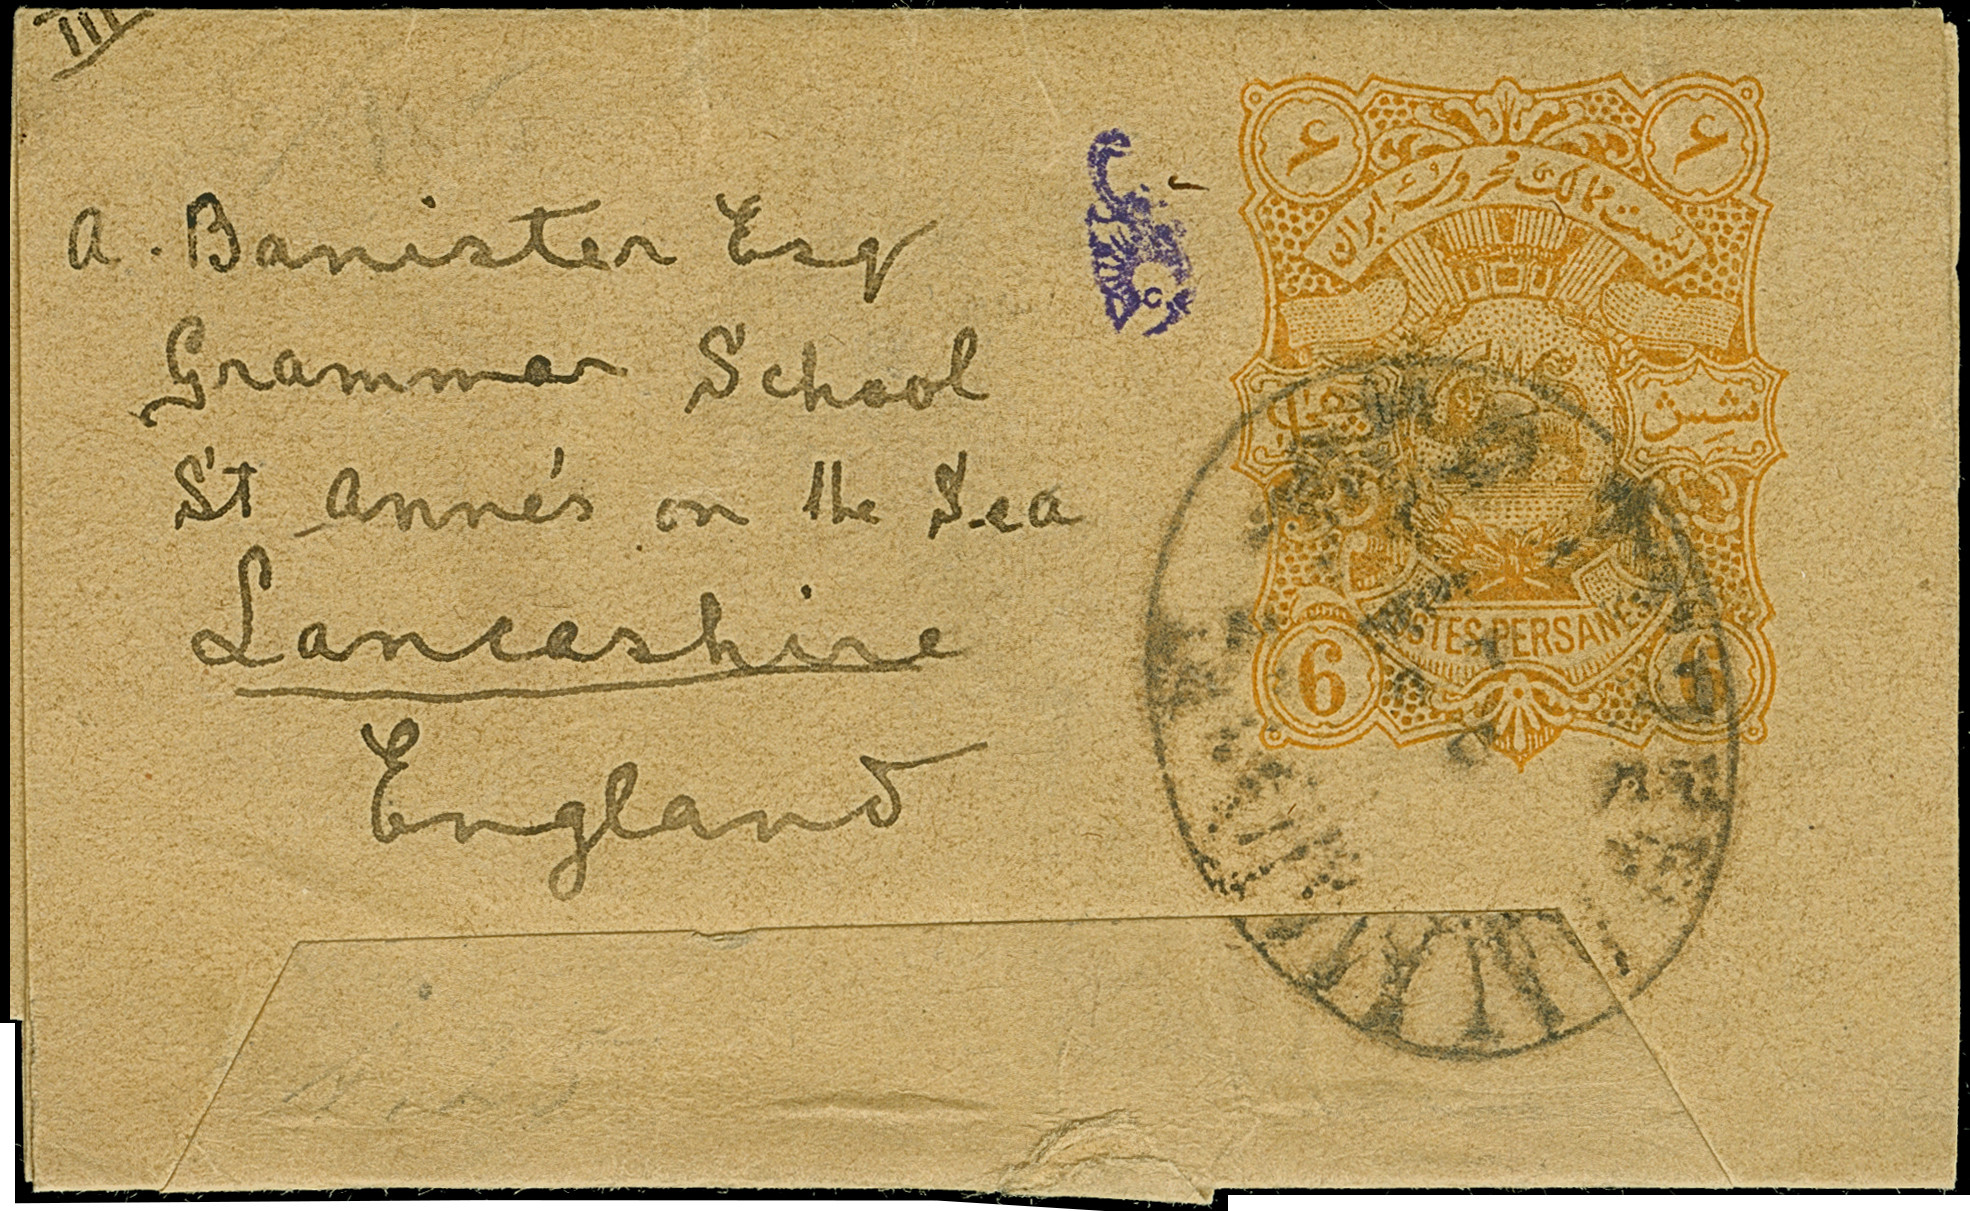 III
A. Banister Esq
Grammar School
St Anne's on the Sea
Lancashire
England
۶ ۶
پست ممالک محروسه ایران
شش
POSTES PERSANES
6 6